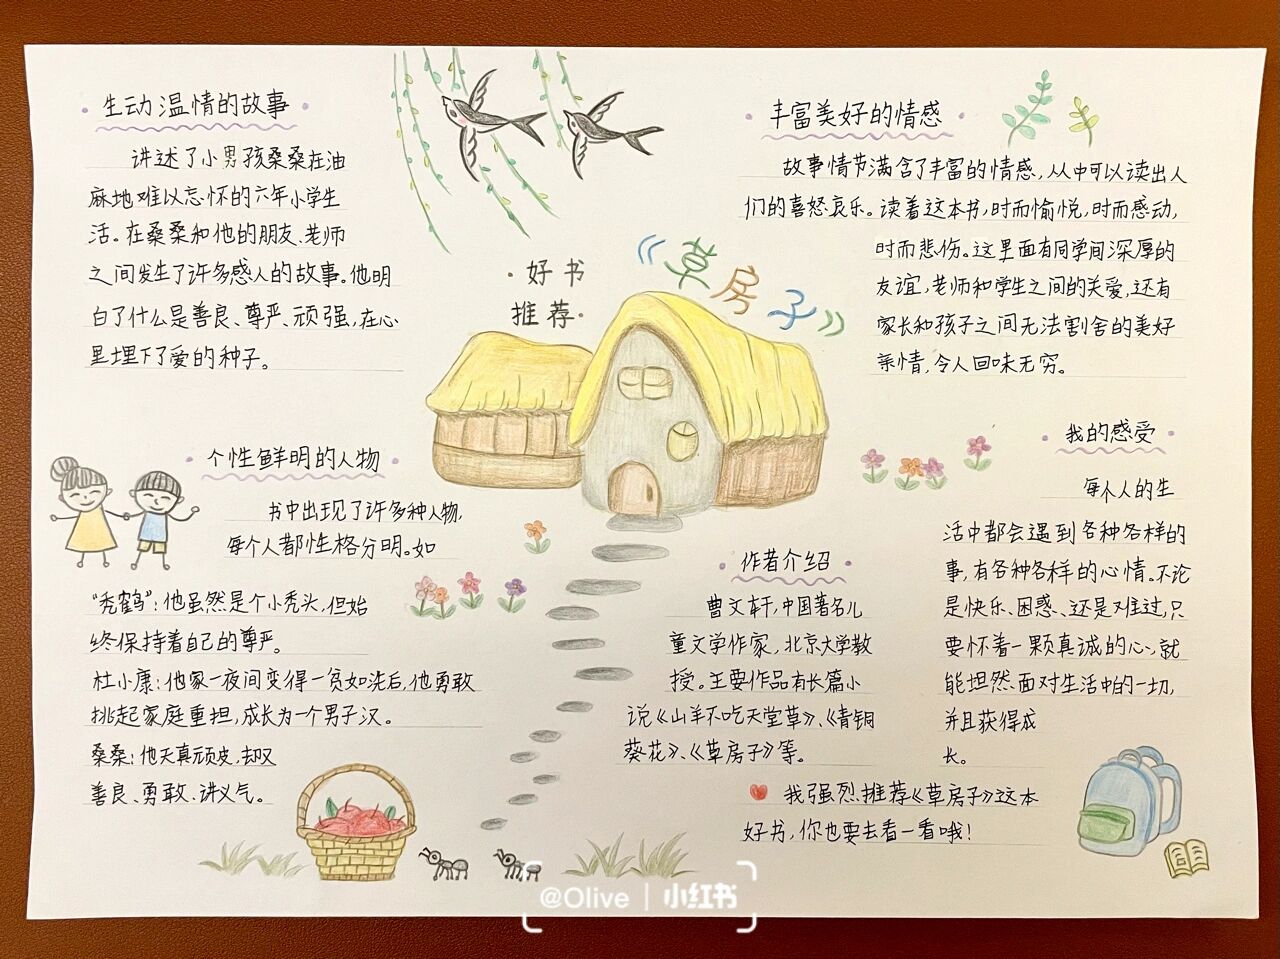 生动温情的故事
讲述了小男孩桑桑在油
麻地难以忘怀的六年小学生
活。在桑桑和他的朋友、老师
之间发生了许多感人的故事。他明
白了什么是善良、尊严、顽强,在心
里埋下了爱的种子。
好书
推荐
《草房子》
丰富美好的情感
故事情节满含了丰富的情感,从中可以读出人
们的喜怒哀乐。读着这本书,时而愉悦,时而感动,
时而悲伤。这里面有同学间深厚的
友谊,老师和学生之间的关爱,还有
家长和孩子之间无法割舍的美好
亲情,令人回味无穷。
个性鲜明的人物
书中出现了许多种人物,
每个人都性格分明。如
“秃鹤”:他虽然是个小秃头,但始
终保持着自己的尊严。
杜小康:他家一夜间变得一贫如洗后,他勇敢
挑起家庭重担,成长为一个男子汉。
桑桑:他天真顽皮,却又
善良、勇敢、讲义气。
作者介绍
曹文轩,中国著名儿
童文学作家,北京大学教
授。主要作品有长篇小
说《山羊不吃天堂草》、《青铜
葵花》、《草房子》等。
我的感受
每个人的生
活中都会遇到各种各样的
事,有各种各样的心情。不论
是快乐、困惑、还是难过,只
要怀着一颗真诚的心,就
能坦然面对生活中的一切,
并且获得成
长。
我强烈推荐《草房子》这本
好书,你也要去看一看哦!
@Olive | 小红书